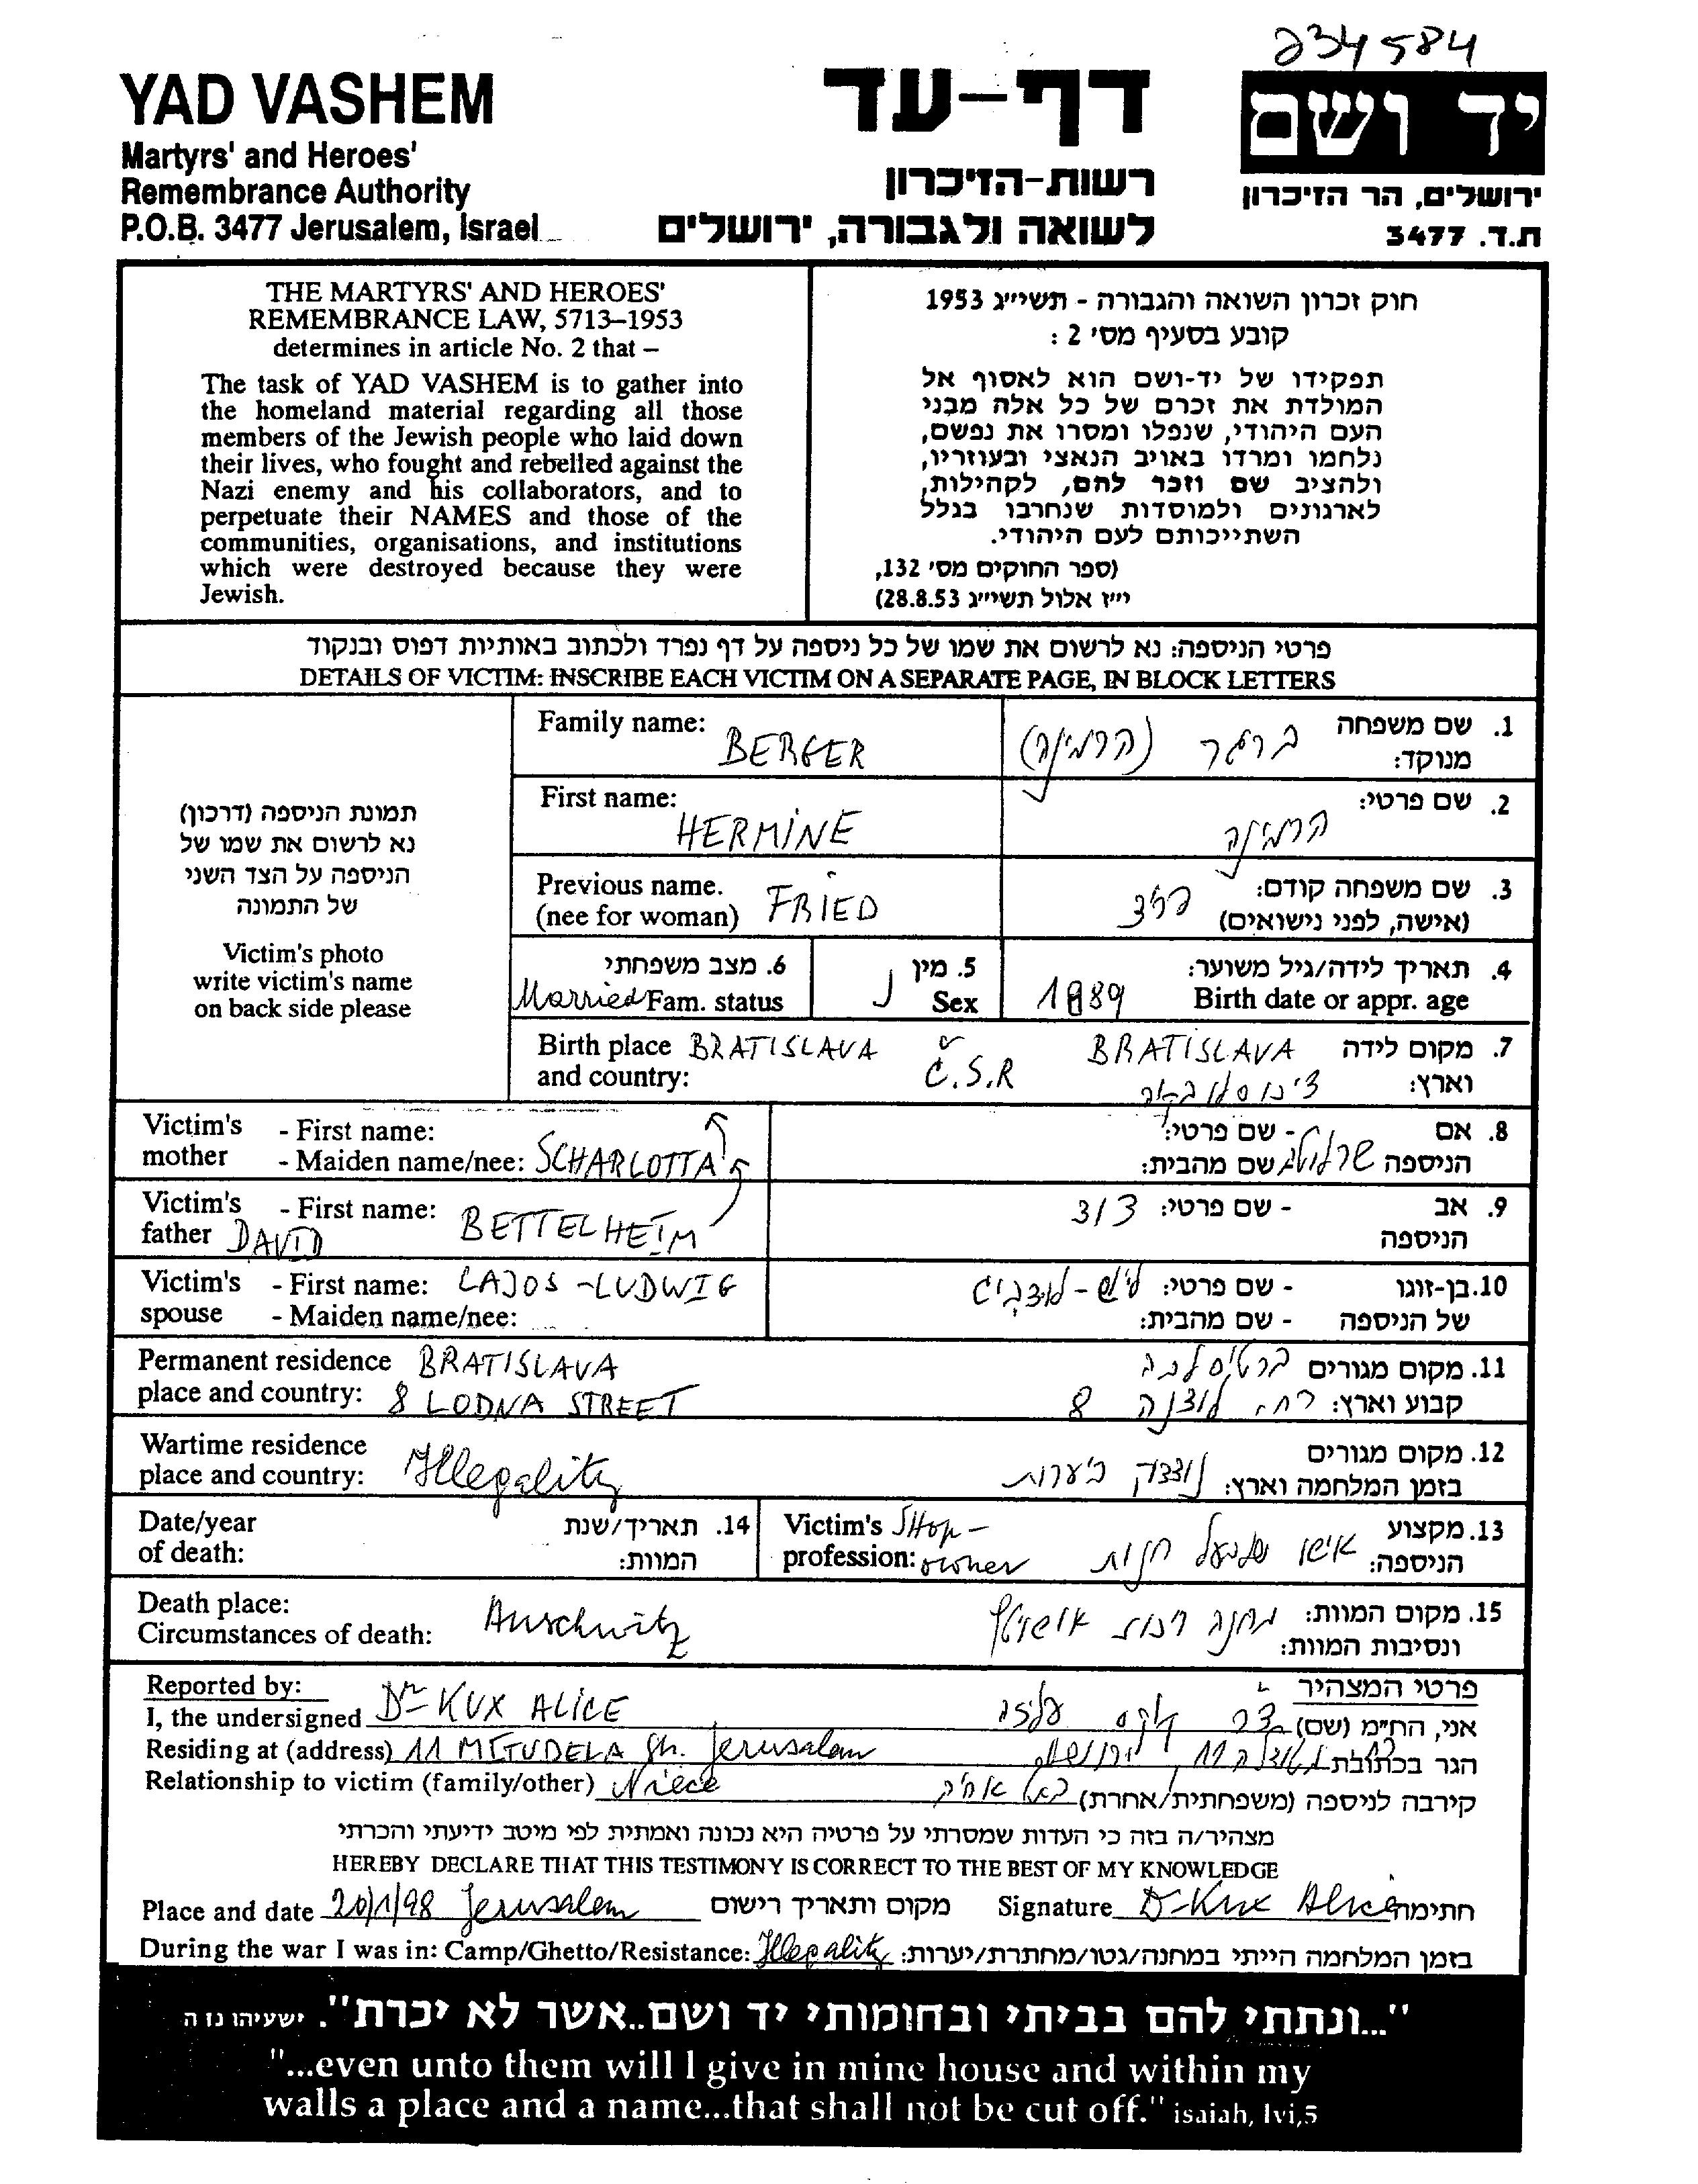 234584
YAD VASHEM
Martyrs' and Heroes'
Remembrance Authority
P.O.B. 3477 Jerusalem, Israel
דף-עד
רשות-הזיכרון
לשואה ולגבורה, ירושלים
יד ושם
ירושלים, הר הזיכרון
ת.ד. 3477
THE MARTYRS' AND HEROES'
REMEMBRANCE LAW, 5713–1953
determines in article No. 2 that –
The task of YAD VASHEM is to gather into
the homeland material regarding all those
members of the Jewish people who laid down
their lives, who fought and rebelled against the
Nazi enemy and his collaborators, and to
perpetuate their NAMES and those of the
communities, organisations, and institutions
which were destroyed because they were
Jewish.
חוק זכרון השואה והגבורה - תשי״ג 1953
קובע בסעיף מס' 2 :
תפקידו של יד-ושם הוא לאסוף אל
המולדת את זכרם של כל אלה מבני
העם היהודי, שנפלו ומסרו את נפשם,
נלחמו ומרדו באויב הנאצי ובעוזריו,
ולהציב שם וזכר להם, לקהילות,
לארגונים ולמוסדות שנחרבו בגלל
השתייכותם לעם היהודי.
(ספר החוקים מס' 132,
י״ז אלול תשי״ג 28.8.53)
פרטי הניספה: נא לרשום את שמו של כל ניספה על דף נפרד ולכתוב באותיות דפוס ובנקוד
DETAILS OF VICTIM: INSCRIBE EACH VICTIM ON A SEPARATE PAGE, IN BLOCK LETTERS
תמונת הניספה (דרכון)
נא לרשום את שמו של
הניספה על הצד השני
של התמונה
Victim's photo
write victim's name
on back side please
Family name: BERGER
1. שם משפחה מנוקד: ברגר (הרמינה)
First name: HERMINE
2. שם פרטי: הרמינה
Previous name. (nee for woman) FRIED
3. שם משפחה קודם: (אישה, לפני נישואים) פריד
6. מצב משפחתי
Married Fam. status
5. מין
Sex
4. תאריך לידה/גיל משוער:
1889 Birth date or appr. age
Birth place and country: BRATISLAVA Č.S.R
7. מקום לידה וארץ: BRATISLAVA צ'כוסלובקיה
Victim's mother - First name:
- Maiden name/nee: SCHARLOTTA
8. אם הניספה - שם פרטי: שרלוטה
שם מהבית:
Victim's father - First name: DAVID BETTELHEIM
9. אב הניספה - שם פרטי: דוד
Victim's spouse - First name: LAJOS - LUDWIG
- Maiden name/nee:
10. בן-זוגו של הניספה - שם פרטי: ליוש - לודביג
- שם מהבית:
Permanent residence place and country: BRATISLAVA
8 LODNA STREET
11. מקום מגורים קבוע וארץ: ברטיסלבה
רח. לודנה 8
Wartime residence place and country: Illegality
12. מקום מגורים בזמן המלחמה וארץ:
Date/year of death:
14. תאריך/שנת המוות:
Victim's profession: Shop-owner
13. מקצוע הניספה: חנות
Death place:
Circumstances of death: Auschwitz
15. מקום המוות: ונסיבות המוות: מחנה אושויץ
Reported by:
פרטי המצהיר
I, the undersigned Dr KUX ALICE
אני, הח״מ (שם) דר קוקס עליזה
Residing at (address) 11 M. TUDELA St. Jerusalem
הגר בכתובת 11, ירושלים
Relationship to victim (family/other) Niece
קירבה לניספה (משפחתית/אחרת)
מצהיר/ה בזה כי העדות שמסרתי על פרטיה היא נכונה ואמתית לפי מיטב ידיעתי והכרתי
HEREBY DECLARE THAT THIS TESTIMONY IS CORRECT TO THE BEST OF MY KNOWLEDGE
Place and date 20/1/98 Jerusalem מקום ותאריך רישום Signature Dr Kux Alice חתימה
During the war I was in: Camp/Ghetto/Resistance: Illegality בזמן המלחמה הייתי במחנה/גטו/מחתרת/יערות:
"...ונתתי להם בביתי ובחומותי יד ושם..אשר לא יכרת". ישעיהו נז ה
"...even unto them will I give in mine house and within my
walls a place and a name...that shall not be cut off." isaiah, lvi,5